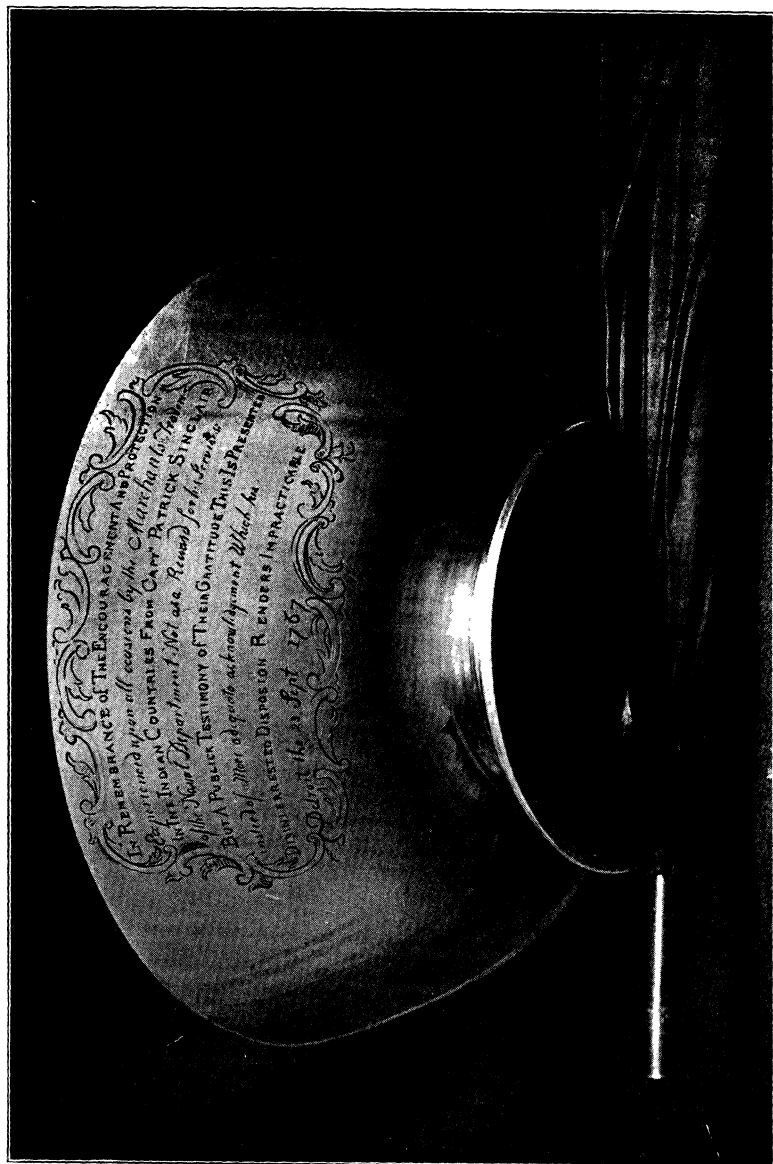 In REMEMBRANCE of THE ENCOURAGEMENT AND PROTECTION
Experienced upon all occasions by the Marchants Trading
IN THE INDIAN COUNTRIES FROM CAPT PATRICK SINCLAIR
of the Naval Department Not as a Reward for his Services
BUT A PUBLICK TESTIMONY OF THEIR GRATITUDE THIS IS PRESENTED
instead of More adequate acknowlegement Which his
DISINTERRESTED DISPOSION RENDERS IMPRACTICABLE
Detroit the 23 Sept 1767